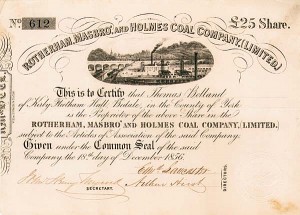 No. 612
£25 Share.
ROTHERHAM, MASBRO', AND HOLMES COAL COMPANY, (LIMITED.)
This is to Certify that Thomas Welland
of Kirby Hall, in the County of York
is the Proprietor of the above Share in the
ROTHERHAM, MASBRO' AND HOLMES COAL COMPANY, (LIMITED,)
subject to the Articles of Association of the said Company:
Given under the Common Seal of the said
Company, the 18th day of December 1856.
SECRETARY.
DIRECTORS.